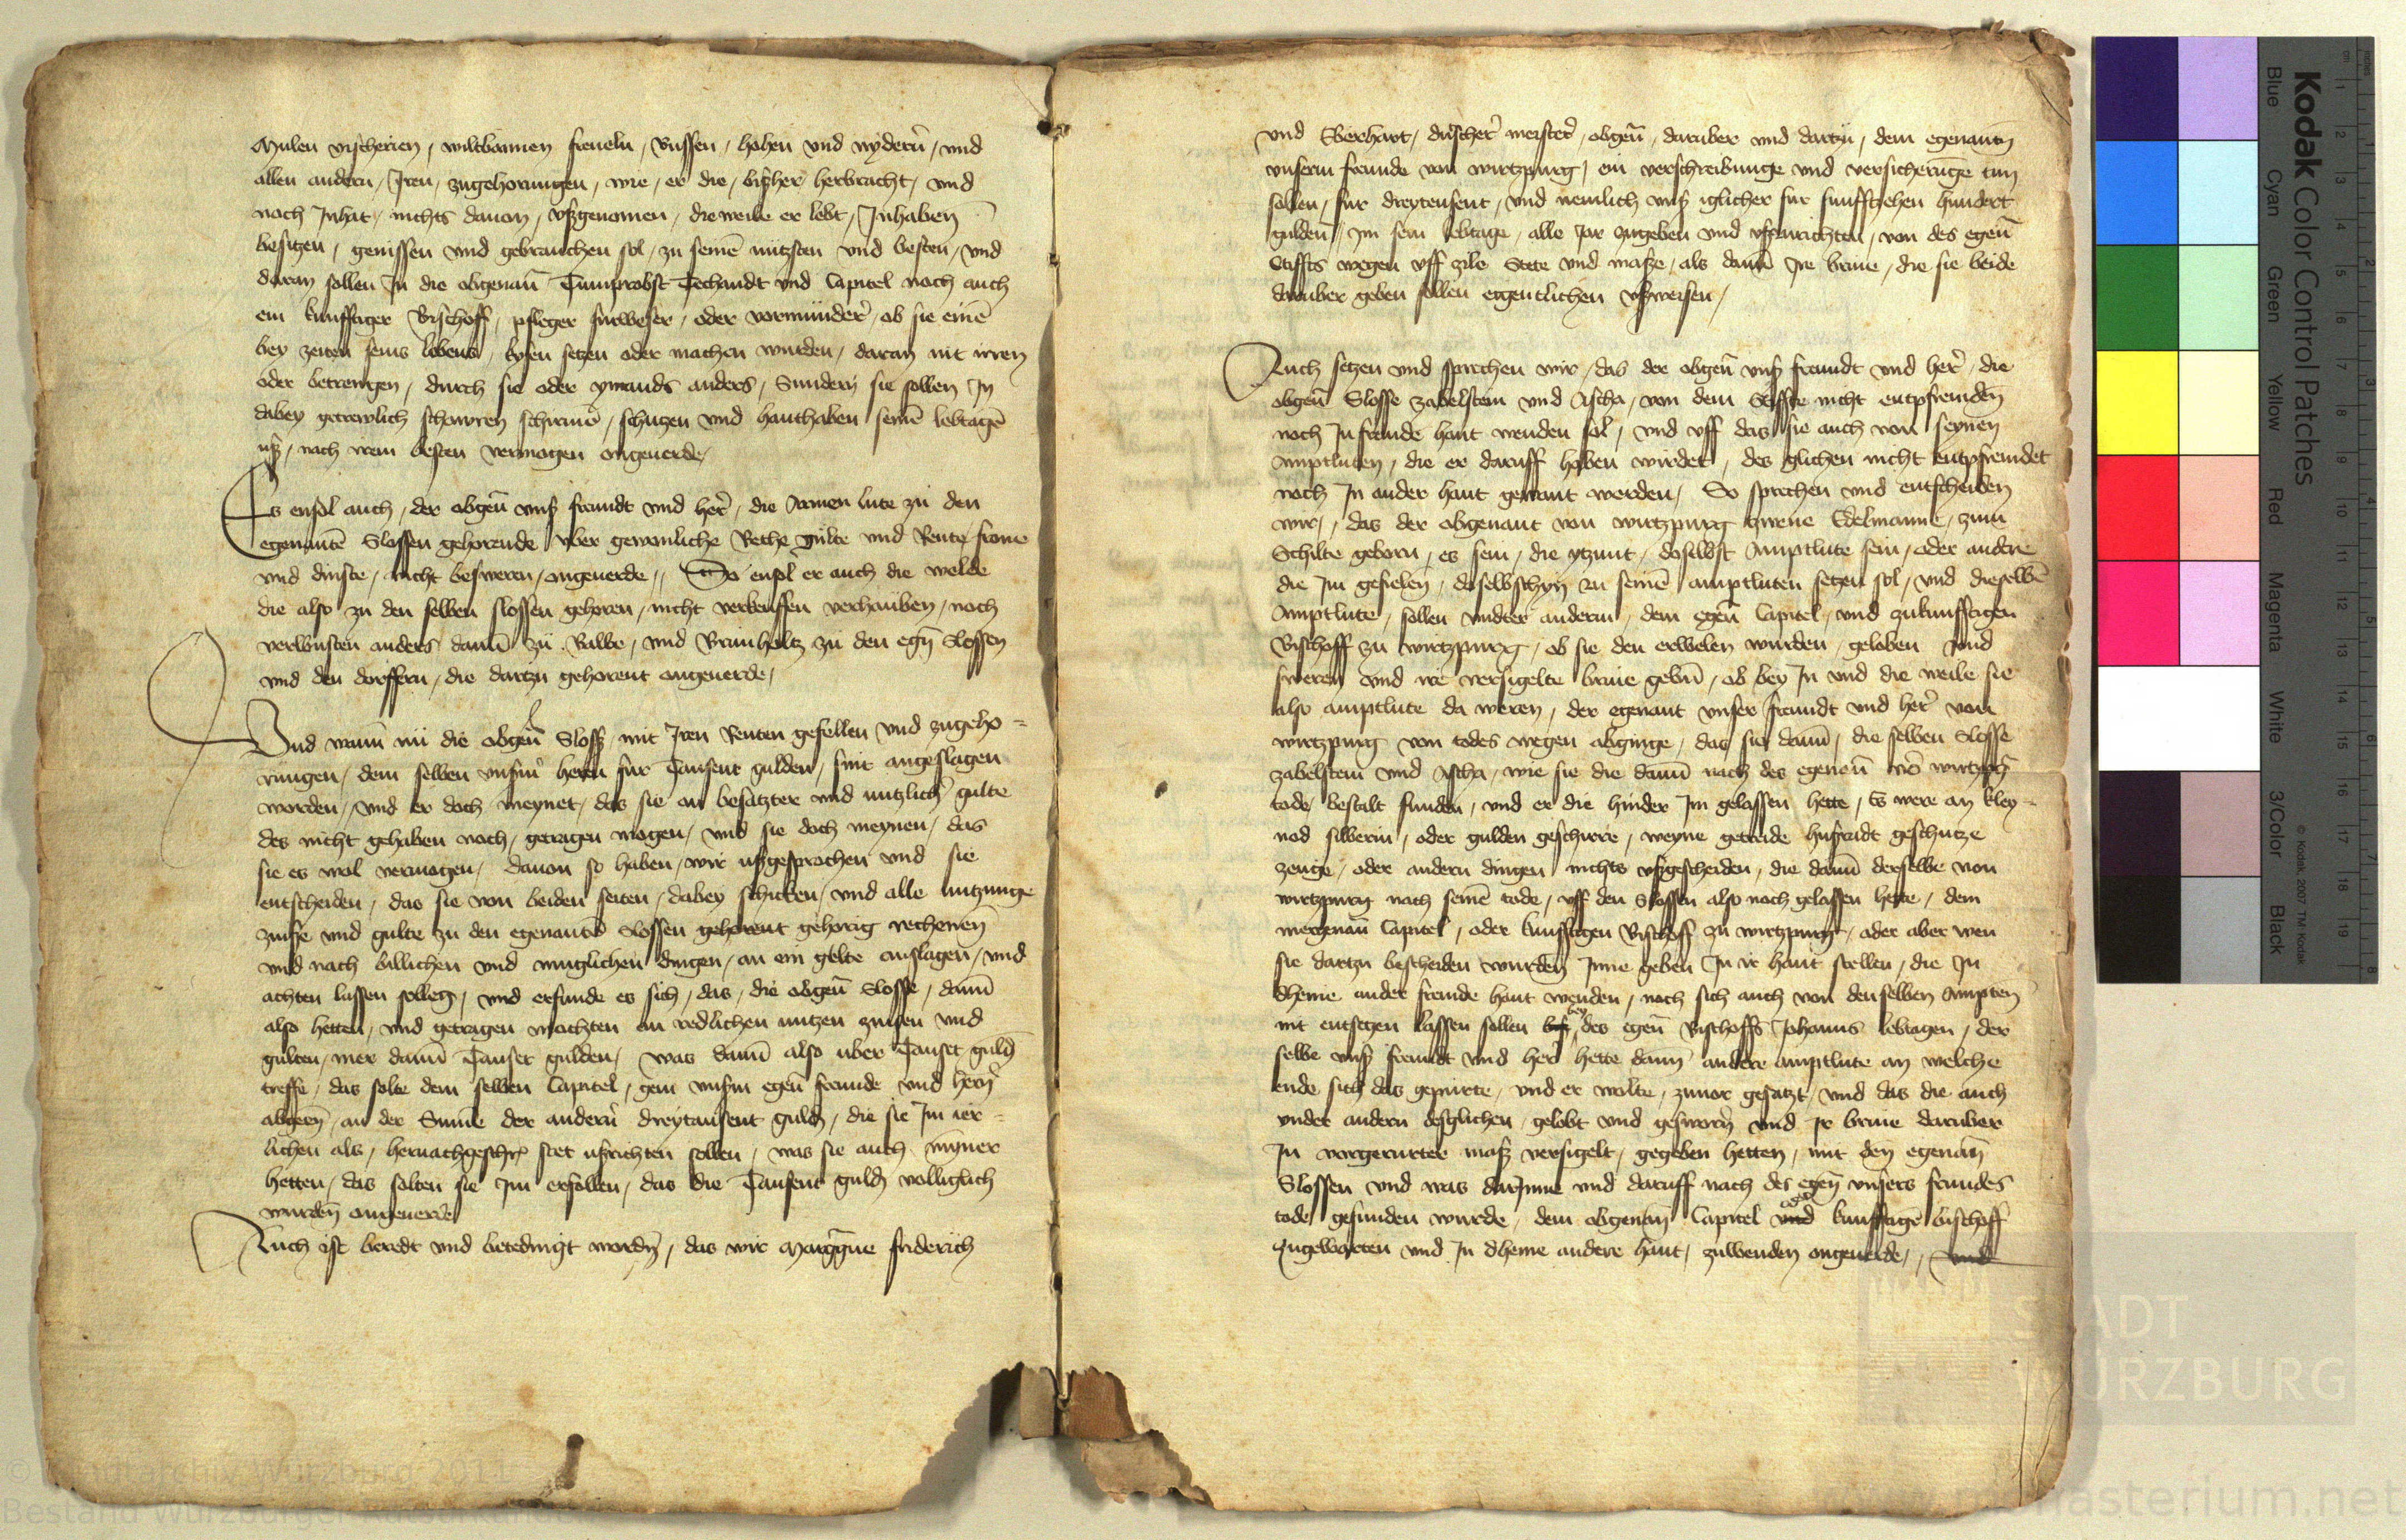 Mulen vischerien / wiltbannen freueln / Bussen / hohen vnd nydern / vnd
allen andern / Iren / zugehorungen / wie / er die / bißher herbracht / vnd
noch Inhat / nichts dauon / vßgenomen / die weile er lebt / Inhaben
besitzen / genissen vnd gebrauchen sol / zu seinē nutzsten vnd besten / vnd
daran sollen In die obgenañ Tumprobst Techandt vnd Capitel noch auch
ein kunfftiger Bischoff / pfleger furweser / oder vormunder / ob sie einē
bey zeiten seins lebens / kysen setzen oder machen wurden / daran nit irren
oder betrengen / durch sie oder ymands anders / Sundern sie sollen In
dabey getrewlich schawren schirmē / schutzen vnd hanthaben seinē lebtagē
uß / nach irem besten vermogen ongeuerde /
Es ensol auch / der obgeñ vnß frundt vnd her / die Armen lute zu den
egenantē Slossen gehorende vber gewonliche Bethe gulte vnd Rente frone
vnd dinste / nicht besweren / ongeuerde // So ensol er auch die welde
die also zu den selben slossen gehoren / nicht verkeuffen verhauben / noch
verwusten anders dann zu Bawe / vnd Brinholtz zu den egñ Slossen
vnd den dorffern / die dartzu gehorent ongeuerde /
Vnd wann nu die obgeñ Sloß / mit Iren Renten gefellen vnd zugeho=
rungen / dem selben vnserm heren fur Tausent gulden / sint angeslagen
worden / vnd er doch meynet / das sie an besatzter vnd nutzlicher gulte
des nicht gehaben noch / getragen mogen / vnd sie doch meynen / das
sie es wol vermogen / dauon so haben / wir ußgesprochen vnd sie
entscheiden / das sie von beiden seiten / dabey schicken / vnd alle nutzunge
zinße vnd gulte zu den egenantē Slossen gehorent gehorig rechenen
vnd nach billichen vnd muglichen dingen / an ein gelte anslagen / vnd
achten lassen sollen / vnd erfunde es sich / das / die obgeñ Slosse / dann
also hetten / vnd getragen mochten an redlichen nutzen zinsen vnd
gulten / mer dann Tauset gulden / was dann also vber Tauset guldn
treffe / das solte dem selben Capitel / gein vnserm egeñ frunde vnd hern
abgeen / an der Summe der andern dreytausent guldn / die sie Im ier=
lichen als / hernachgeschr stet ußrichten sollen / was sie auch mynner
hetten / das solten sie Im erfollen / das die Tausent guldn volliglich
wurden ongeuerde
Auch ist beredt vnd betedingt worden / das wir Marggraue friderich
vnd Eberhart / dutscher meister / obgeñ / daruber vnd dartzu / dem egenantn
vnserm frunde von wirtzpurg / ein verschreibunge vnd versicherunge tun
sollen / fur dreytusent / vnd nemlich vnß iglicher fur funfftzehen hundert
gulden / Im sein lebtage / alle Jar zugeben vnd vßzurichten / von des egeñ
Stiffts wegen vff zile Stete vnd masze / als dann Ire briue / die sie beide
daruber geben sollen eigentlichen vßweisen /
Auch setzen vnd sprechen wir / das der obgeñ vnß frundt vnd her / die
obgeñ Slosse zabelstein vnd Ascha / von dem Stiffte nicht entpfremden
noch In fremde hant wenden sol / vnd vff das sie auch von seynen
Amptluten / die er daruff haben wirdet / des glichen nicht entpfremdet
noch In ander hant gewant werden / So sprechen vnd entscheiden
wir / das der obgenant von wirtzpurg zwene Edelmanne / zum
Schilte geborn / es sein / die ytzunt / doselbst Amptlute sein / oder andere
die Im gefielen / doselbschyn zu seinē amptluten setzen sol / vnd dieselbē
Amptlute / sollen vndter anderm / dem egeñ Capitel / vnd zukunfftigen
Bischoff zu wirtzpurg / ob sie den erwelen wurden / geloben vnd
sweren vnd ire versigelte briue geben / ob bey In vnd die weile sie
also amptlute da weren / der egenant vnser frundt vnd her von
wirtzpurg von todes wegen abginge / das sie dann / die selben Slosse
zabelstein vnd Ascha / wie sie die dann nach des egeneñ vō wirtzpg
tode / bestalt funden / vnd er die hinder Im gelassen hette / Es were an kley=
nod silberin / oder gulden geschirre / weyne getreide hußradt geschutze
zeuge / oder andern dingen nichts vßgescheiden / die dann derselbe von
wirtzpurg nach seinē tode / vff den Slossen also noch gelassen hette / dem
mergenañ Capitel / oder kunfftigen Bischoff zu wirtzpurg / oder aber wen
sie dartzu bescheiden wurden Inne geben In ir hant stellen / die In
dheine ander fremde hant wenden / noch sich auch von denselben Ampten
nit entsetzen lassen sollen bey des egeñ Bischoffs Johanns lebtagen / der
selbe vnß frundt vnd her hette dann andere amptlute an welche
ende sich das gepurte / vnd er wolte / zuuor gesatzt / vnd das die auch
vnder andern deßglichen / gelobt vnd gesworn vnd Ir briue daruber
In vorgerurter maß versigelt / gegeben hetten / mit den egenañ
Slossen vnd was darInne vnd daruff nach des egeñ vnsers frundes
tode / gefunden wurde / dem obgenañ Capitel oder kunfftigē bischoff
Ingewarten vnd In dheine andere hant / zuwenden ongeuerde / / vnd
Kodak Color Control Patches
Blue Cyan Green Yellow Red Magenta White 3/Color Black
© Kodak, 2007 TM: Kodak
STADT
WÜRZBURG
© Stadtarchiv Würzburg 2011
Bestand Würzburger Ratsurkunden
www.monasterium.net